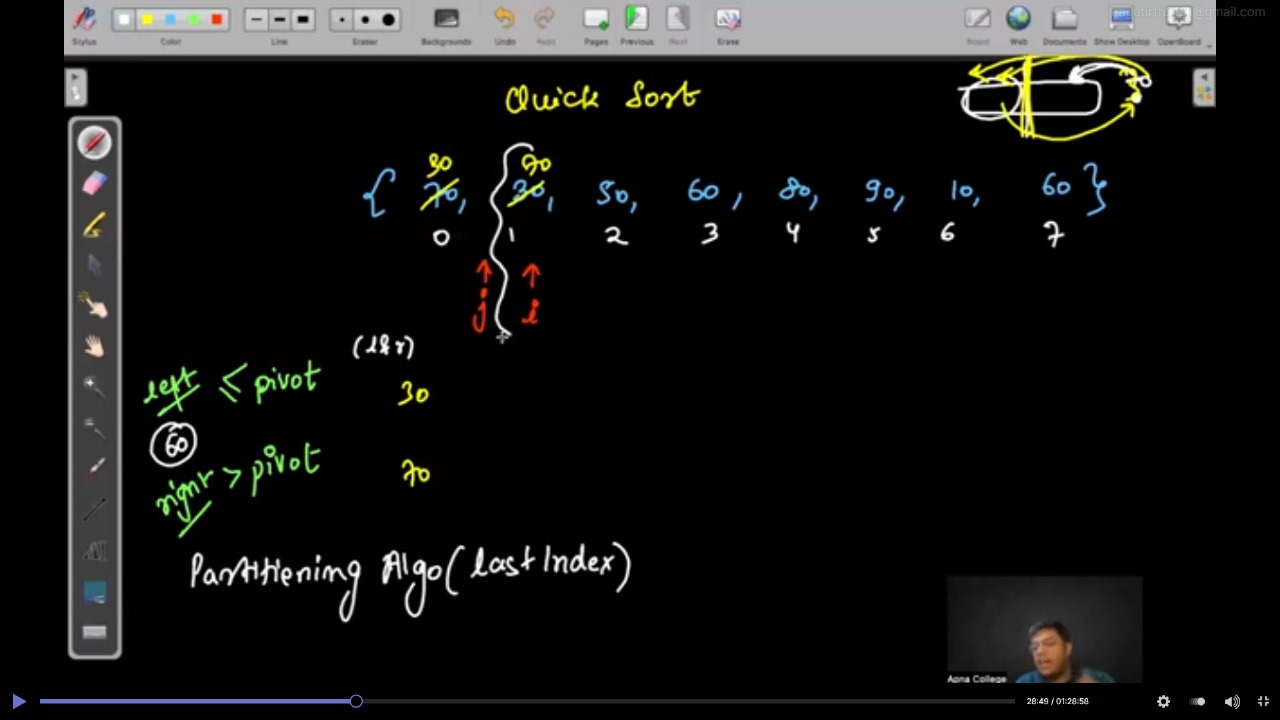 Stylus Color Line Eraser Backgrounds Undo Redo Pages Previous Next Erase Board Web Documents Show Desktop OpenBoard
Quick Sort
30 70
{ 70, 30, 50, 60, 80, 90, 10, 60 }
0 1 2 3 4 5 6 7
j i
(l&r)
left ≤ pivot 30
60
right > pivot 70
Partitiening Algo(last Index)
Apna College
28:49 / 01:28:58